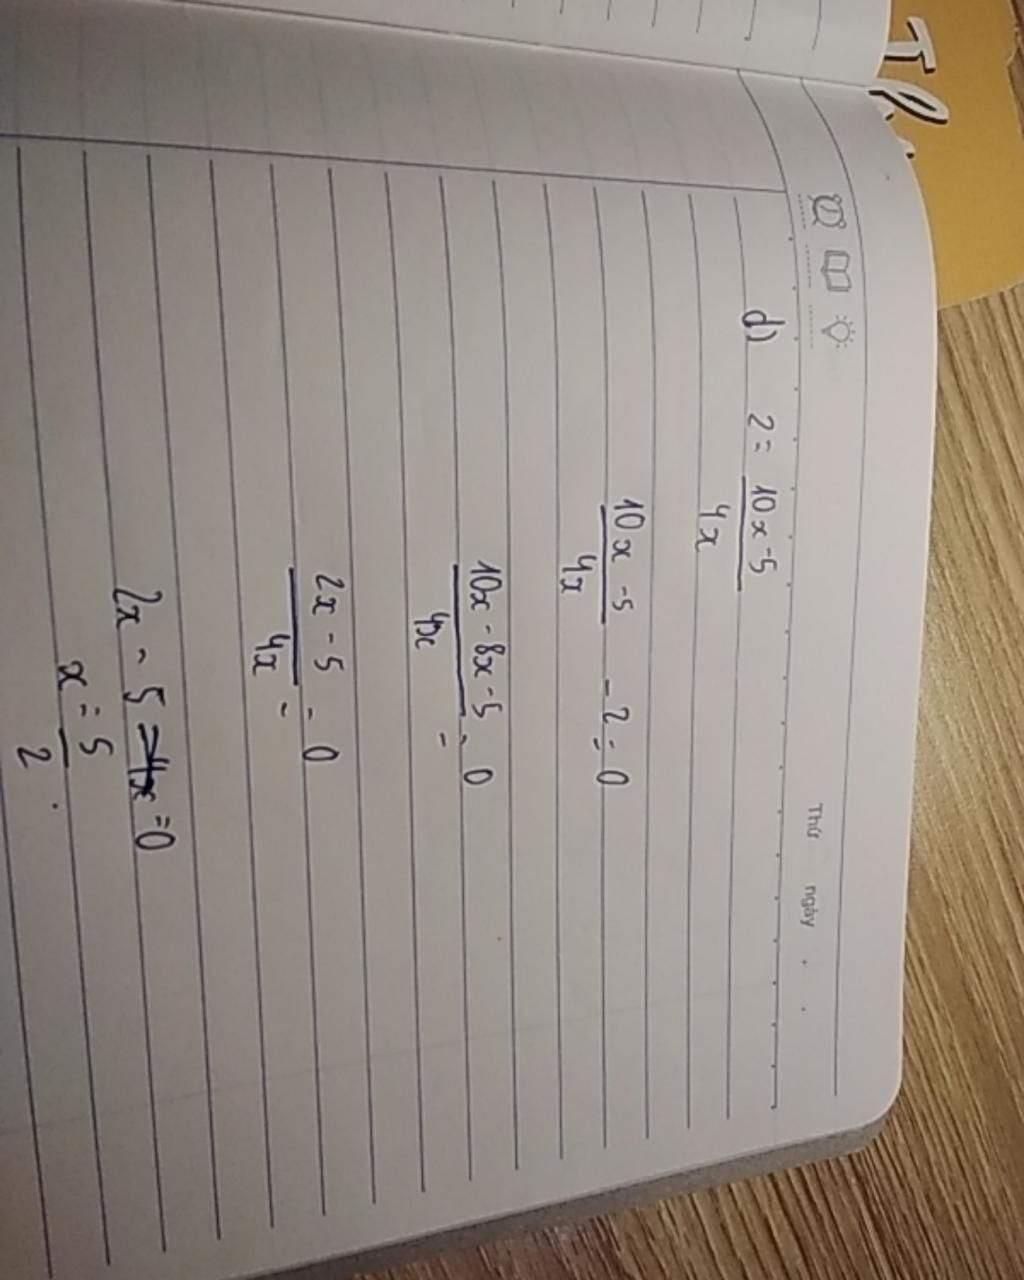 Thứ ngày . .
d) 2 = \frac{10x-5}{4x}
\frac{10x-5}{4x} - 2 = 0
\frac{10x-8x-5}{4x} = 0
\frac{2x-5}{4x} = 0
2x - 5 = 0
x = \frac{5}{2} .